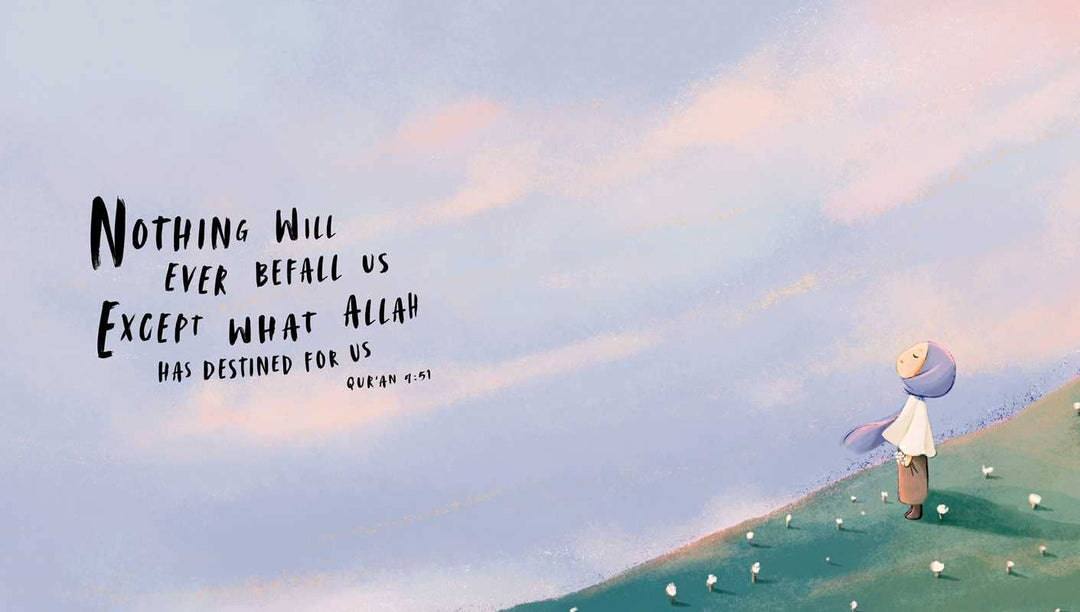 Nothing Will
ever befall us
Except what Allah
has destined for us
Qur'an 9:51